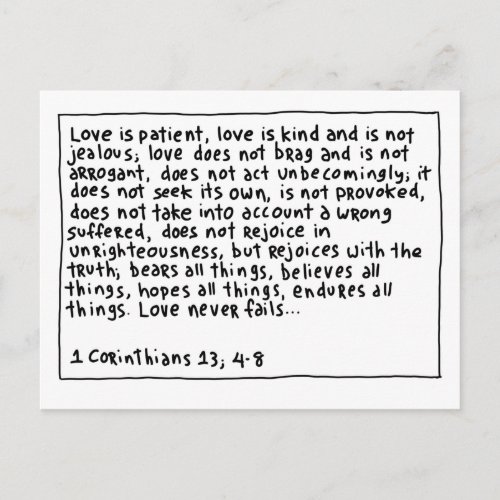 Love is patient, love is kind and is not
jealous; love does not brag and is not
arrogant, does not act unbecomingly; it
does not seek its own, is not provoked,
does not take into account a wrong
suffered, does not rejoice in
unrighteousness, but rejoices with the
truth; bears all things, believes all
things, hopes all things, endures all
things. Love never fails...
1 Corinthians 13; 4-8